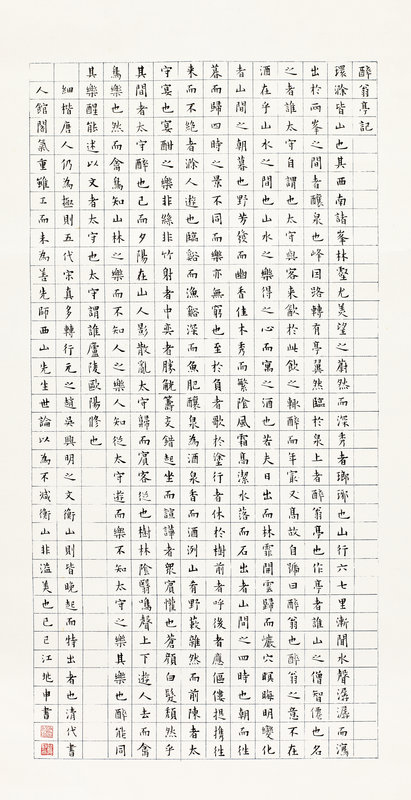 醉翁亭記
環滁皆山也其西南諸峯林壑尤美望之蔚然而深秀者瑯琊也山行六七里漸聞水聲潺潺而瀉
出於兩峯之間者釀泉也峰回路轉有亭翼然臨於泉上者醉翁亭也作亭者誰山之僧智僊也名
之者誰太守自謂也太守與客來飲於此飲少輒醉而年冣又高故自號曰醉翁也醉翁之意不在
酒在乎山水之間也山水之樂得之心而寓之酒也若夫日出而林霏開雲歸而巖穴暝晦明變化
者山間之朝暮也野芳發而幽香佳木秀而繁陰風霜高潔水落而石出者山間之四時也朝而往
暮而歸四時之景不同而樂亦無窮也至於負者歌於塗行者休於樹前者呼後者應傴僂提攜往
來而不絕者滁人遊也臨谿而漁谿深而魚肥釀泉為酒泉香而酒洌山肴野蔌雜然而前陳者太
守宴也宴酣之樂非絲非竹射者中奕者勝觥籌交錯起坐而諠譁者眾賓懽也蒼顏白髮頹然乎
其間者太守醉也已而夕陽在山人影散亂太守歸而賓客從也樹林陰翳鳴聲上下遊人去而禽
鳥樂也然而禽鳥知山林之樂而不知人之樂人知從太守遊而樂不知太守之樂其樂也醉能同
其樂醒能述以文者太守也太守謂誰廬陵歐陽脩也
細楷唐人仍為極則五代宋真多轉行元之趙吳興明之文衡山則皆晚起而特出者也清代書
人館閣氣重雖工而未為善先師西山先生世論以為不減衡山非溢美也己巳江兆申書